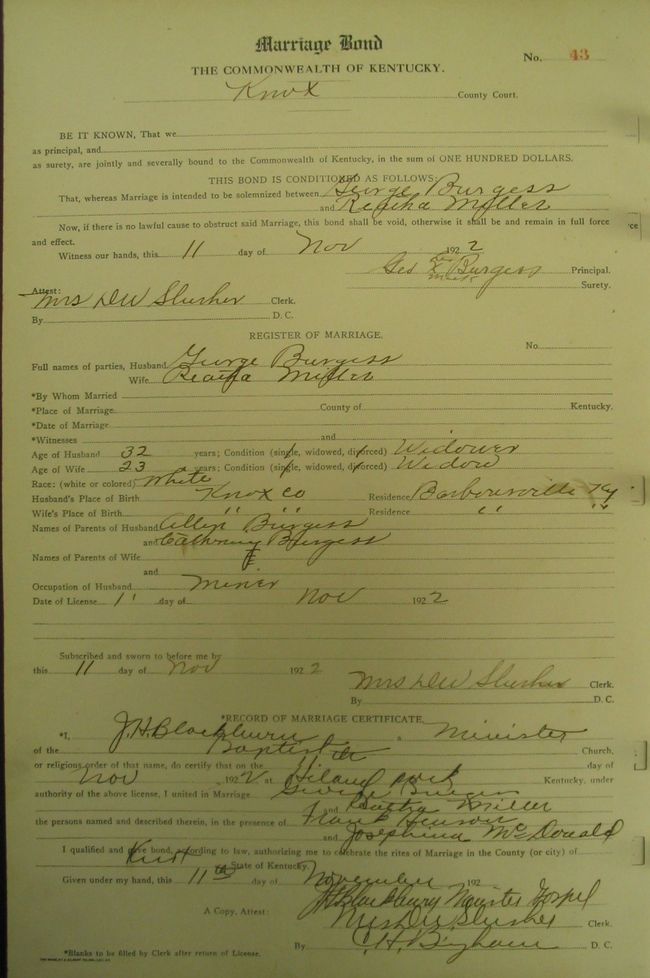 Marriage Bond
No. 43
THE COMMONWEALTH OF KENTUCKY.
Knox County Court.
BE IT KNOWN, That we
as principal, and
as surety, are jointly and severally bound to the Commonwealth of Kentucky, in the sum of ONE HUNDRED DOLLARS.
THIS BOND IS CONDITIONED AS FOLLOWS:
That, whereas Marriage is intended to be solemnized between George Burgess
and Reatha Miller
Now, if there is no lawful cause to obstruct said Marriage, this bond shall be void, otherwise it shall be and remain in full force
and effect.
Witness our hands, this 11 day of Nov 1922
Geo X Burgess Principal.
mark
Surety.
Attest:
Mrs DW Slusher Clerk.
By D. C.
REGISTER OF MARRIAGE.
No.
Full names of parties, Husband George Burgess
Wife Reatha Miller
*By Whom Married
*Place of Marriage County of Kentucky.
*Date of Marriage
*Witnesses and
Age of Husband 32 years; Condition (single, widowed, divorced) Widower
Age of Wife 23 years; Condition (single, widowed, divorced) Widow
Race: (white or colored) White
Husband's Place of Birth Knox Co Residence Barbourville Ky
Wife's Place of Birth " " Residence " "
Names of Parents of Husband Allen Burgess
and Burgess
Names of Parents of Wife
and
Occupation of Husband Miner
Date of License 11 day of Nov 1922
Subscribed and sworn to before me by
this 11 day of Nov 1922
Mrs DW Slusher Clerk.
By D. C.
*RECORD OF MARRIAGE CERTIFICATE
*I, J.H. Blackburn a Minister
of the Baptist Church,
or religious order of that name, do certify that on the day of
Nov 1922 at Hiland Park Kentucky, under
authority of the above license, I united in Marriage George Burgess
and Miller
the persons named and described therein, in the presence of Frank Henson
and Josephine McDonald
I qualified and gave bond, according to law, authorizing me to celebrate the rites of Marriage in the County (or city) of
Knox State of Kentucky.
Given under my hand, this 11th day of November 192
J.H. Blackburn Minister Gospel
A Copy, Attest: Mrs DW Slusher Clerk.
By C. H. Bingham D. C.
*Blanks to be filled by Clerk after return of License.